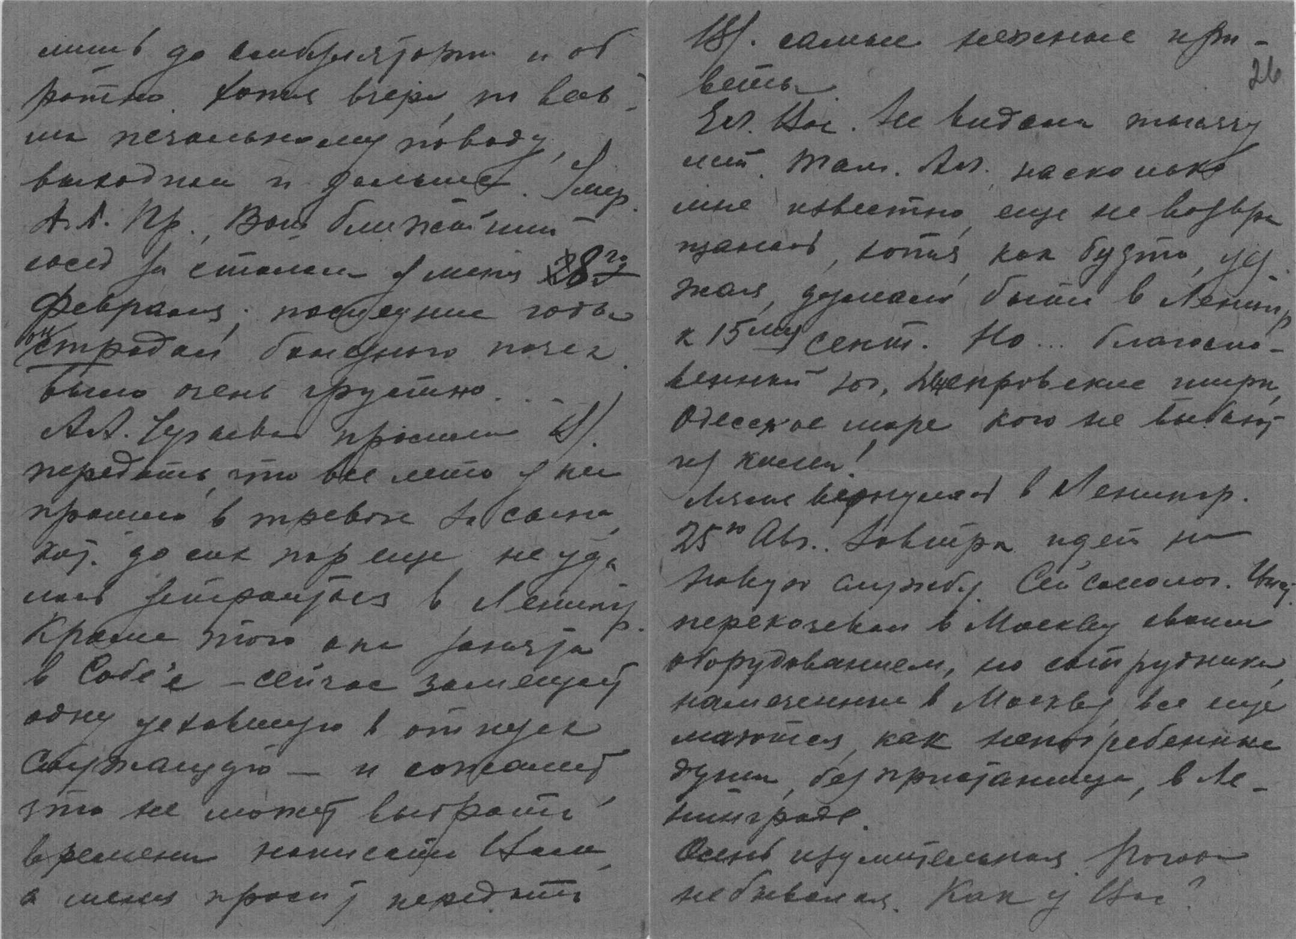 лишь до амбулатории и об
ратно. Хотя вчера, по весь-
ма печальному поводу,
выходила и дальше. Умер
А.А. Пр., Ваш ближайший
сосед за столом у меня 28го
февраля; последние годы
он страдал болезнью почек.
было очень грустно. . . .
А.А. просила В.
передать, что все лето у нее
прошло в тревоге за сына,
кот. до сих пор еще не уда
лось устроиться в Ленингр.
Кроме того она занята
в Собесе – сейчас замещает
одну уехавшую в отпуск
служащую – и сожалеет
что не может выбрать
времени написать Вам,
а меня просит передать
В. самые нежные при-
веты.
26
Ел. Ник. не видала тысячу
лет. Там. Ал., насколько
мне известно, еще не возвра
щалась, хотя, как будто, уез-
жая, думала быть в Ленингр
к 15му сент. Но... благосло-
венный юг, Днепровские шири,
Одесское море кого не выбьют
из колеи!
Ляля вернулась в Ленингр.
25го Авг. Завтра идет на
новую службу. Сейсмолог. Инст.
перекочевал в Москву своим
оборудованием, но сотрудники,
намеченные в Москву, все еще
маются, как непогребенные
души, без пристанища, в Ле-
нинграде.
Осень изумительная. Погода
небывалая. Как у Вас?